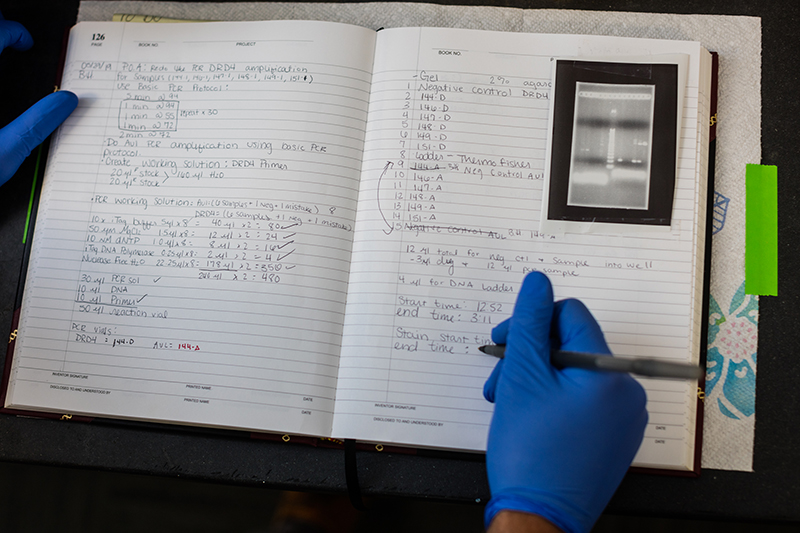 126
PAGE BOOK NO. PROJECT
P.O.A: Redo the PCR DRD4 amplification
BH for samples
Use Basic PCR Protocol:
5 min @ 94
1 min @ 94
1 min @ 55 repeat x 30
1 min @ 72
2 min @ 72
- Do AVL PCR amplification using basic PCR
protocol
- Create working solution: DRD4 Primer
20 µl F stock
20 µl R stock 160 µl H2O
• PCR working solution: AVL: (6 samples + 1 neg + 1 mistake) 8
DRD4 = (6 samples + 1 neg + 1 mistake)
10x iTaq buffer 5µl x 8 = 40 µl x 2 = 80 ✓
50 µM MgCl2 1.5 µl x 8 = 12 µl x 2 = 24 ✓
10 mM dNTP 1.0 µl x 8 = 8 µl x 2 = 16 ✓
iTaq DNA Polymerase 0.25 µl x 8 = 2 µl x 2 = 4 ✓
Nuclease Free H2O 22.25 µl x 8 = 178 µl x 2 = 356 ✓
x 2 = 480
30 µl PCR sol ✓
10 µl DNA
10 µl Primer ✓
50 µl reaction vial
PCR vials:
DRD4 = 144-D AVL = 144-A
INVENTOR SIGNATURE PRINTED NAME DATE
DISCLOSED TO AND UNDERSTOOD BY PRINTED NAME DATE
BOOK NO.
- Gel 2% agarose
1 Negative control DRD4
2 144-D
3 146-D
4 147-D
5 148-D
6 149-D
7 151-D
8 Ladder - Thermo Fisher
9 144-A BH Neg Control AVL
10 146-A
11 147-A
12 148-A
13 149-A
14 151-A
15 Negative control AVL BH 144-A
12 µl total for neg ctl + sample into well
-3µl dye + 12 µl per sample
4 µl for DNA ladder
Start time: 12:52
end time: 3:11
Stain, start time
end time:
INVENTOR SIGNATURE
DISCLOSED TO AND UNDERSTOOD BY
DATE
DATE